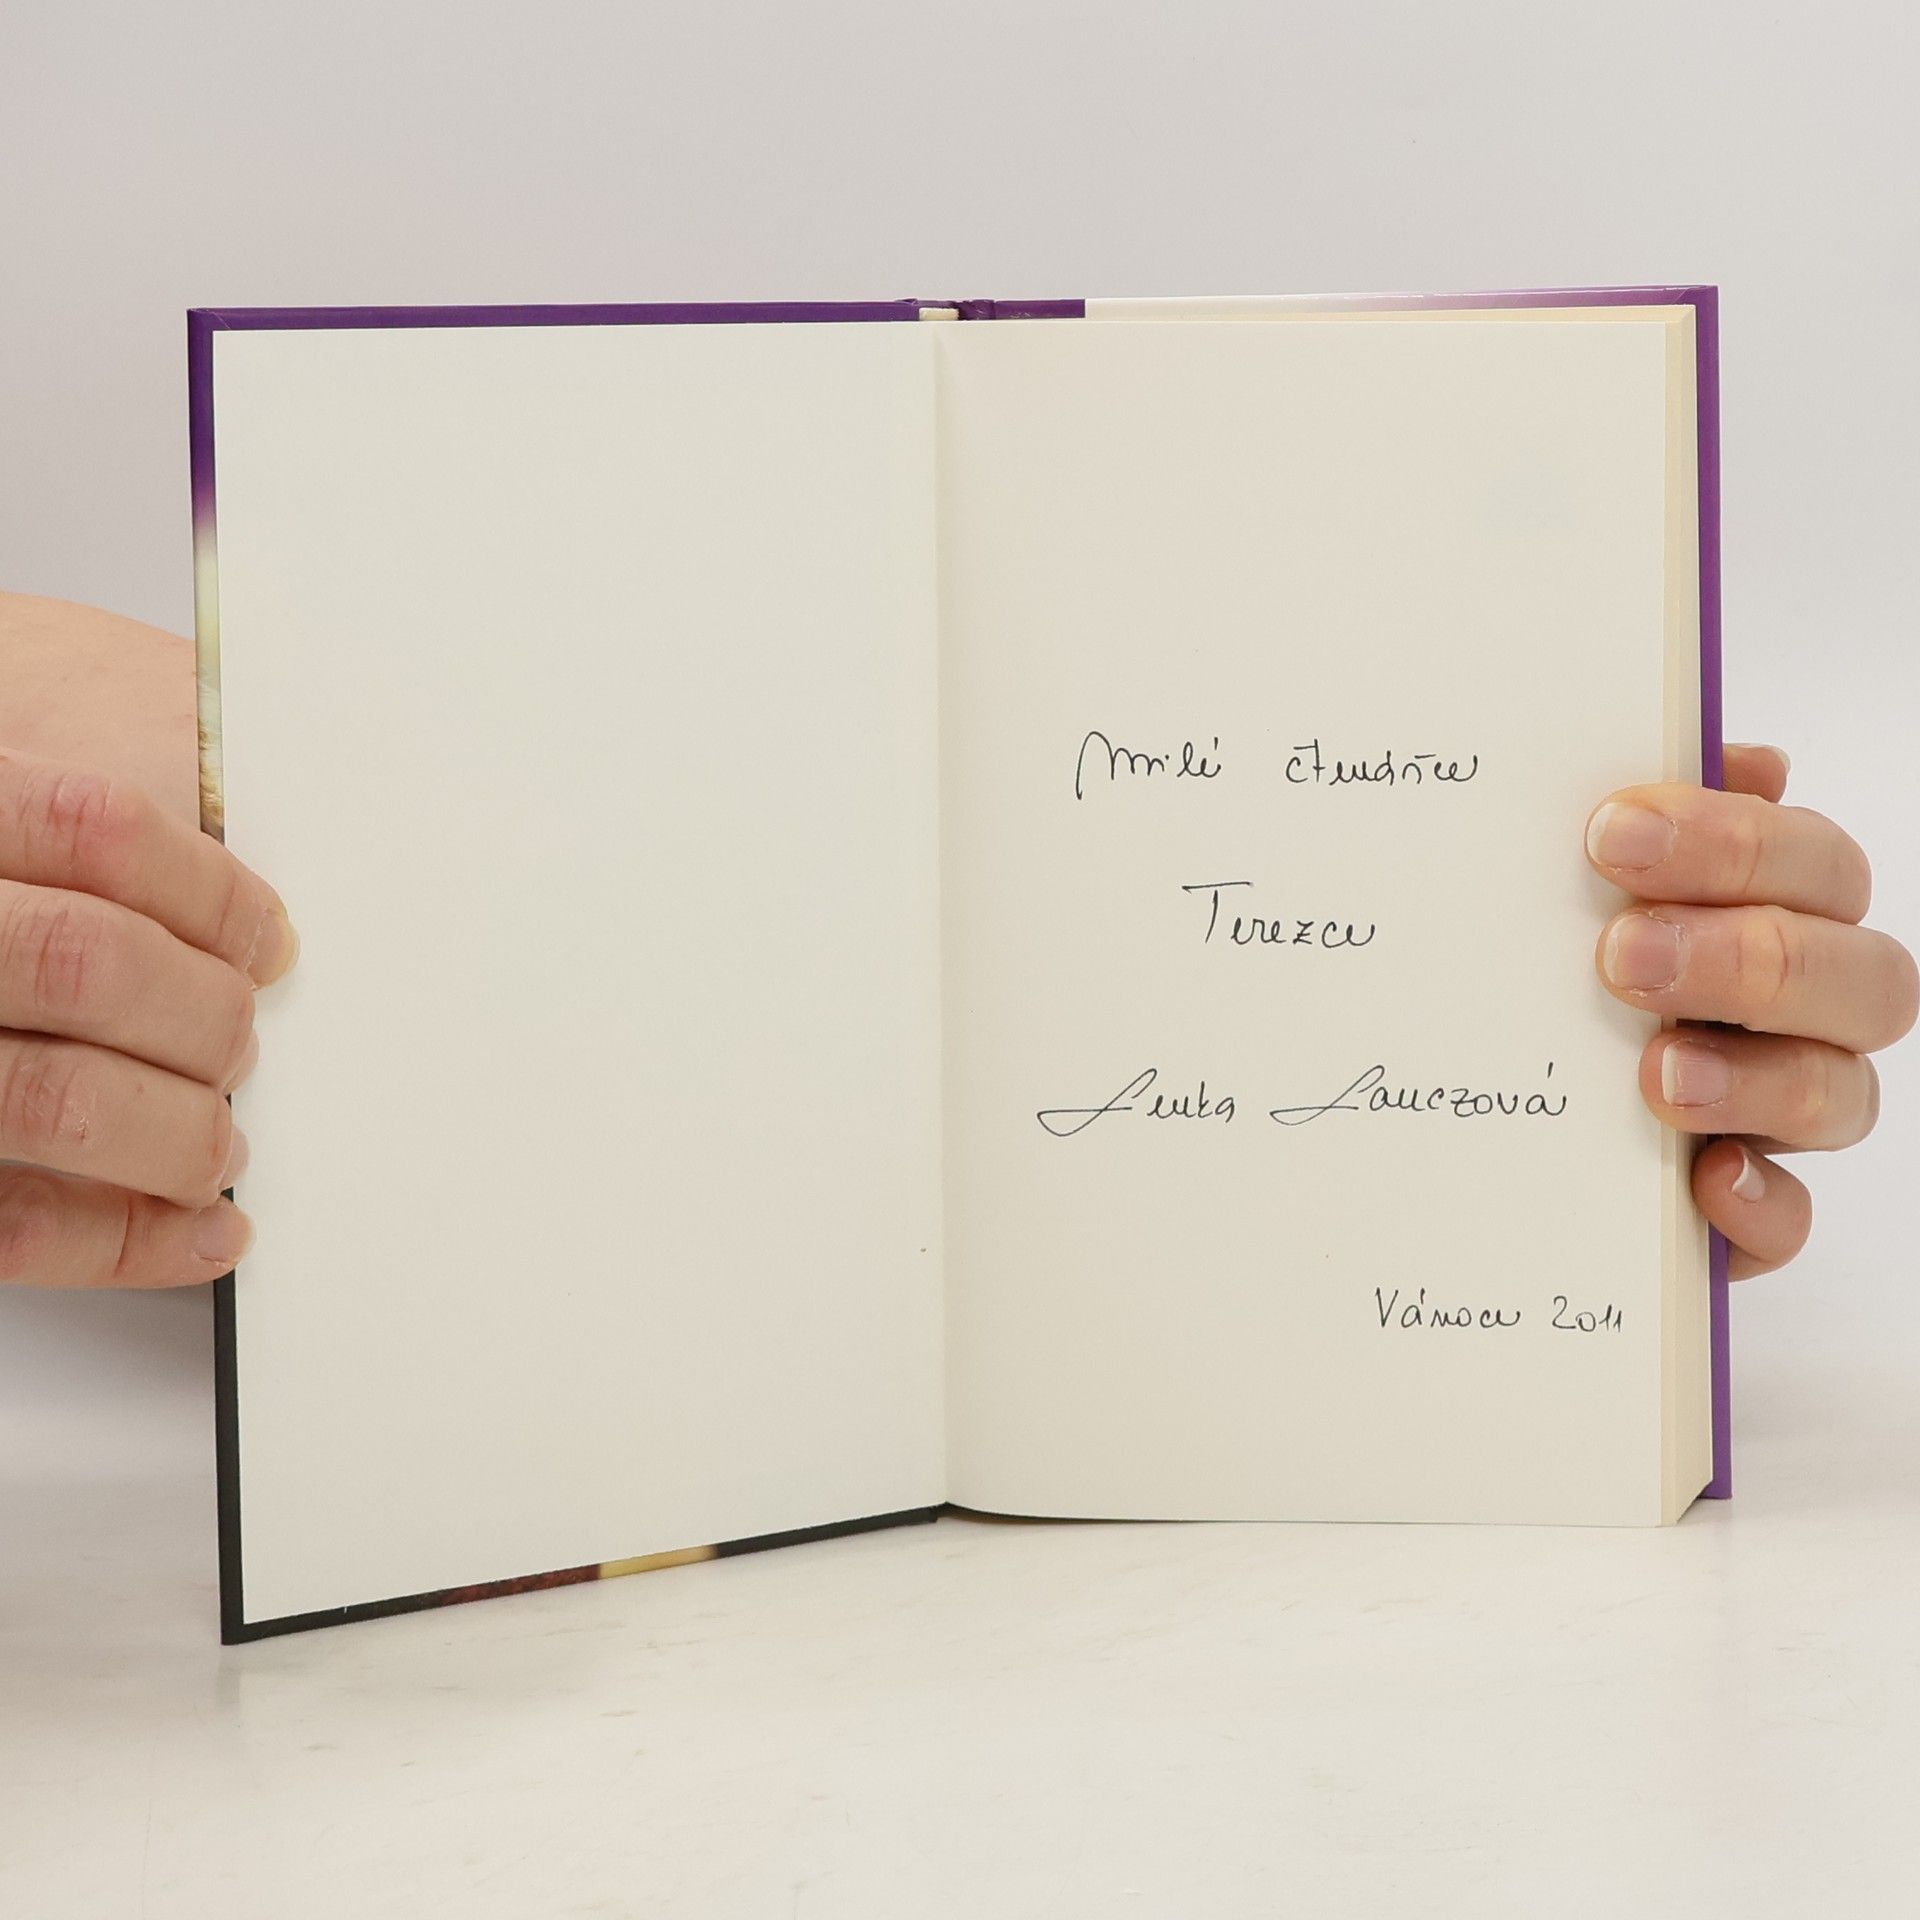 Milé čtenářce
Terezce
Lenka Lanczová
Vánoce 2011